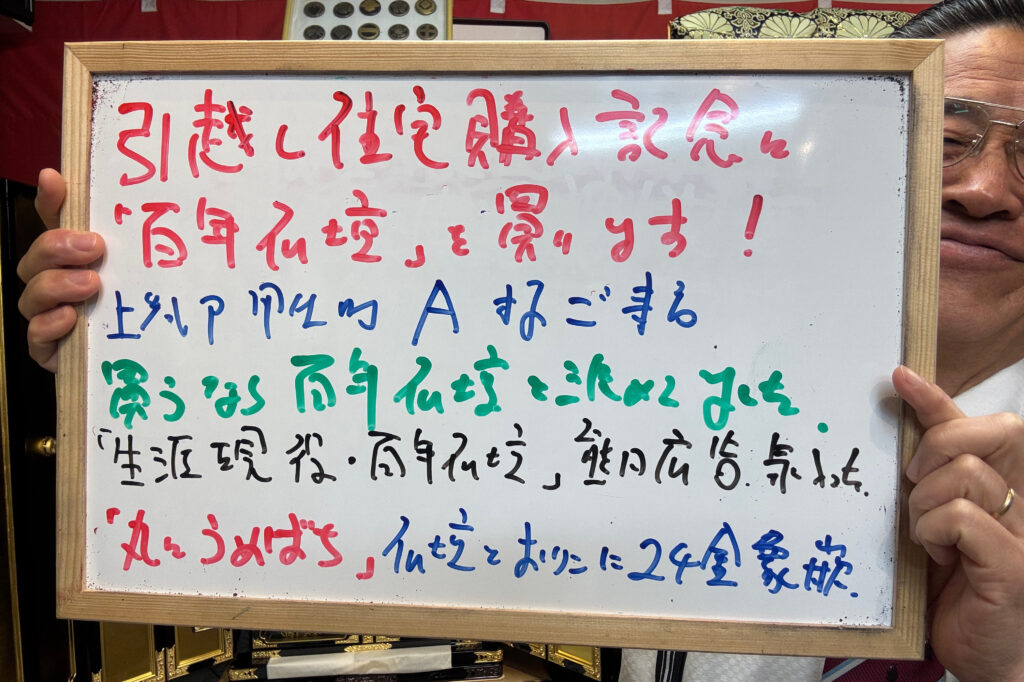 引越し住宅購入記念に
「百年仏壇」を買います!
上気P甲生的A すなごまる
買うなら百年仏壇と決めてました.
「生涯現役・百年仏壇」熊日広告.気入った.
「丸にうめばち」仏壇とおりんに24金象嵌.